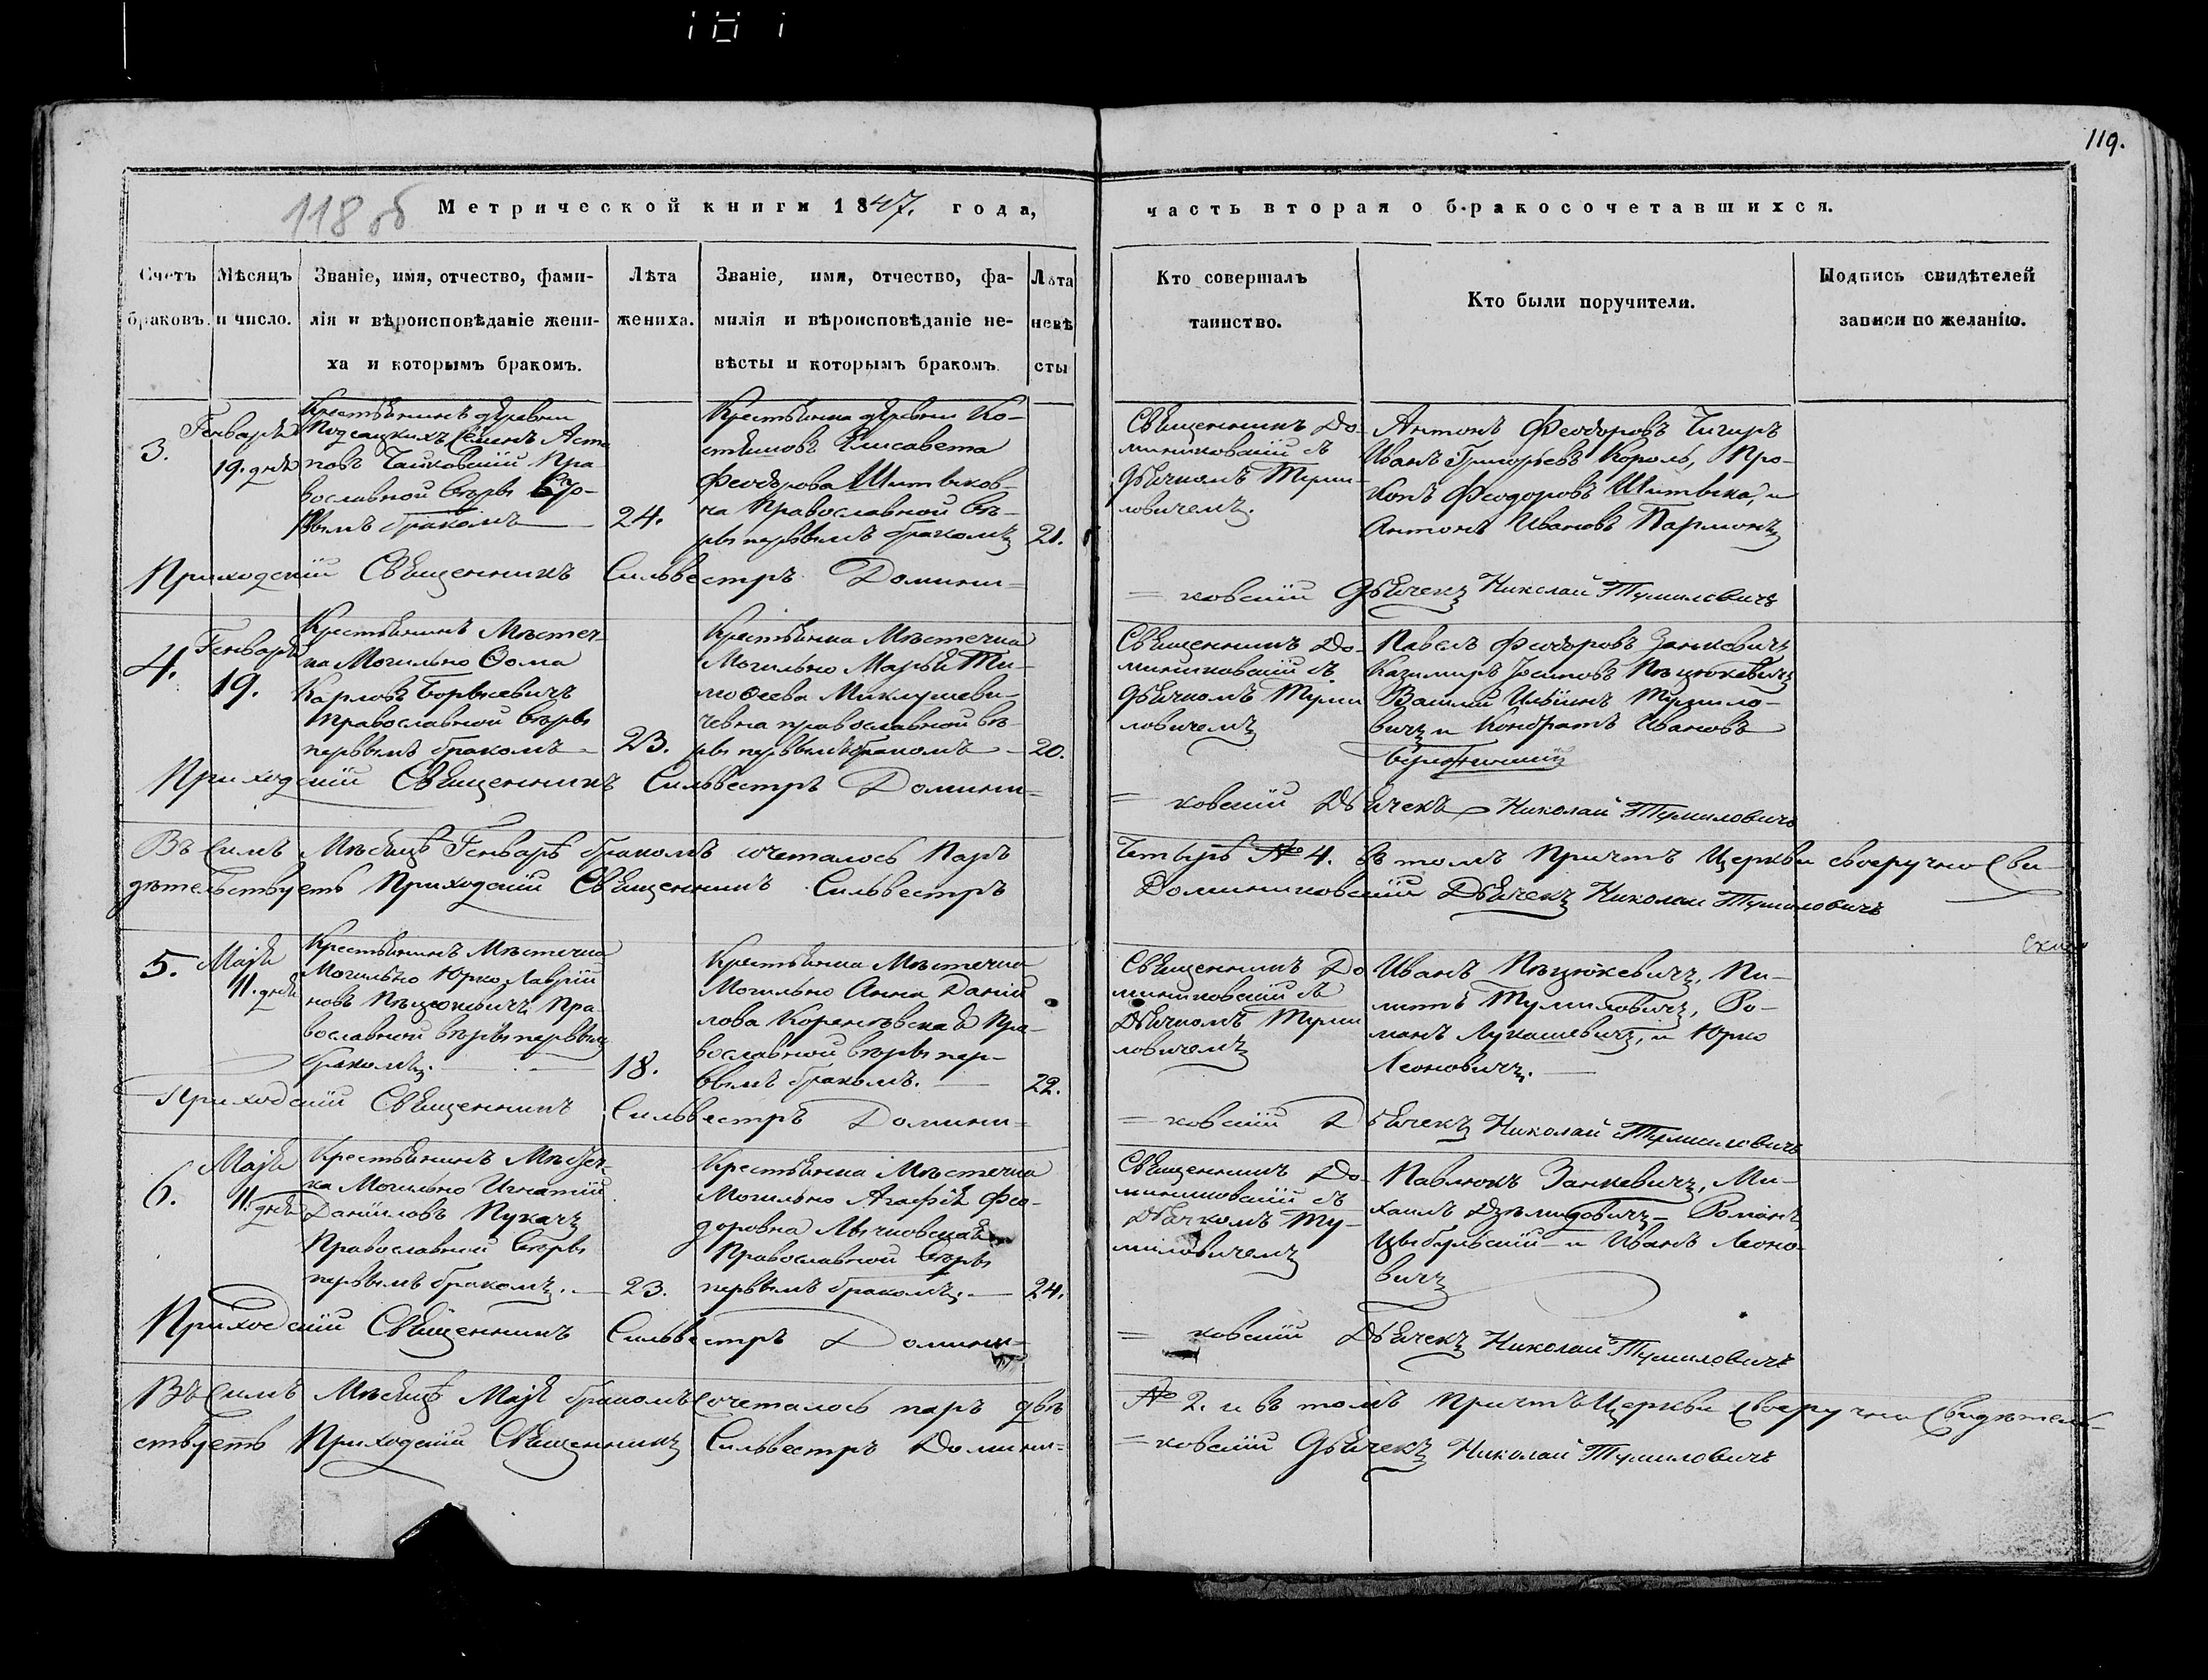 119.
118 об
Метрической книги 1847. года,
часть вторая о бракосочетавшихся.
Счетъ браковъ.
Мѣсяцъ и число.
Званіе, имя, отчество, фами-
лія и вѣроисповѣданіе жени-
ха и которымъ бракомъ.
Лѣта
жениха.
Званіе, имя, отчество, фа-
милія и вѣроисповѣданіе не-
вѣсты и которымъ бракомъ.
Лѣта
невѣ
сты
Кто совершалъ
таинство.
Кто были поручители.
Подпись свидѣтелей
записи по желанію.
3.
Генваря
19. дня
Крестьянинъ деревни
Семенъ
повъ Чайковскій Пра
вославной вѣры
бракомъ
24.
Крестьянка деревни Ко-
Елисавета
Феодорова Шитьков-
на Православной вѣ-
ры первымъ бракомъ
21.
Священникъ До-
миниковскій съ
дьячкомъ Туми-
ловичемъ.
Антонъ Феодоровъ Чигиръ
Иванъ Григорьевъ Король, Про-
копъ Феодоровъ Шитька, и
Антонъ Ивановъ Пармонъ
Приходскій Священникъ Сильвестръ Домини=
=ковскій Дьячекъ Николай Тумиловичъ
4.
Генваря
19.
Крестьянинъ Мѣстеч-
ка Могильно Ѳома
Карловъ Борысевичъ
православной вѣры
первымъ бракомъ
23.
Крестьянка Мѣстечка
Могильно Марья Ти-
моѳеева Миклушеви-
чевна православной вѣ-
ры первымъ бракомъ
20.
Священникъ До-
миниковскій съ
дьячкомъ Туми
ловичемъ
Павелъ Феодоровъ Занкевичъ
Казимиръ Пецюкевичъ
Василій Ильинъ Тумило-
вичъ и Кондратъ Ивановъ
Приходскій Священникъ Сильвестръ Домини=
= ковскій Дьячекъ Николай Тумиловичъ
Въ семъ Мѣсяцѣ Генварѣ бракомъ сочеталось Паръ
Четыръ № 4. въ томъ Причтъ Церкви своеручно Сви-
дѣтельствуетъ Приходскій Священникъ Сильвестръ
Доминиковскій Дьячекъ Николай Тумиловичъ
5.
Маія
11. дня
Крестьянинъ Мѣстечка
Могильно Юрко Лаврій
новъ Пецюкевичъ Пра
вославной вѣры первым
бракомъ.
18.
Крестьянка Мѣстечка
Могильно Анна Даніи
лова Кореневская Пра-
вославной вѣры пер-
вымъ бракомъ.
22.
Священникъ До
миниковскій съ
Дьячкомъ Туми
ловичемъ
Иванъ Пецюкевичъ, Ни-
китъ Тумиловичъ, Ро-
манъ Лукашевичъ, и Юрко
Леоновичъ.
Приходскій Священникъ Сильвестръ Домини=
= ковскій Дьячекъ Николай Тумиловичъ
6.
Маія
11. дня
Крестьянинъ Мѣстеч-
ка Могильно Игнатій
Даніиловъ Пукачъ
Православной вѣры
первымъ бракомъ.
23.
Крестьянка Мѣстечка
Могильно Агафія Фео-
доровна Лычковская
Православной вѣры
первымъ бракомъ.
24.
Священникъ До-
миниковскій съ
Дьячкомъ Ту-
миловичемъ
Павлюкъ Занкевичъ, Ми-
хаилъ Дземидовичъ Романъ
Цыбульскій и Иванъ Леоно-
вичъ
Приходскій Священникъ Сильвестръ Домини-
= ковскій Дьячекъ Николай Тумиловичъ
Въ Семъ Мѣсяцѣ Маіѣ бракомъ Сочеталось паръ двѣ
№ 2. и въ томъ Причтъ Церкви Своеручно Свидѣтель-
ствуетъ Приходскій Священникъ Сильвестръ Домини=
= ковскій Дьячекъ Николай Тумиловичъ